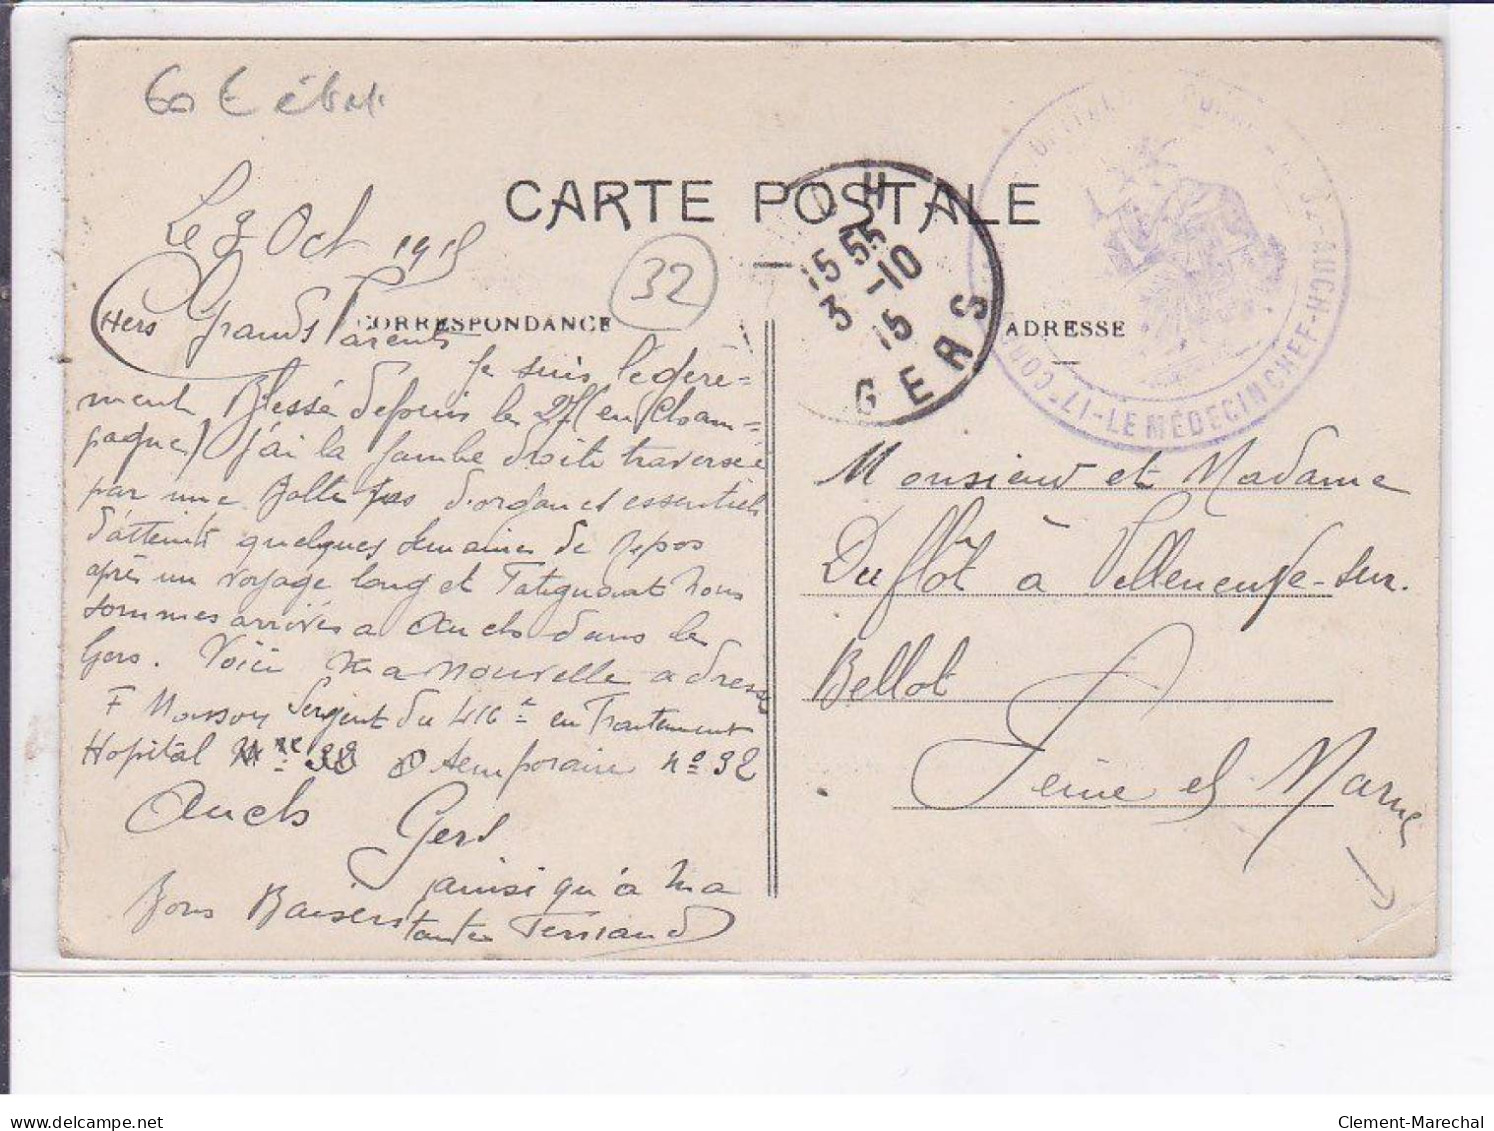 60 €
CARTE POSTALE
Le 3 Oct 1915
32
Chers Grands Parents
CORRESPONDANCE
Je suis légère-
ment Blessé depuis le 27 (en Cham-
pagne) J'ai la jambe droite traversée
par une Balle pas d'organes essentiels
d'atteints quelques semaines de repos
après un voyage long et Fatiguant Nous
sommes arrivés a Auch dans le
Gers. Voici ma nouvelle adresse
F Mousson Sergent du 416e en Traitement
Hopital temporaire no 32
Auch Gers
Bons Baisers ainsi qu'à ma
tante Fernand
15 55
3 -10
15
GERS
32-AUCH
17e CORPS
LE MÉDECIN CHEF
ADRESSE
Monsieur et Madame
Duflot à Villeneuve-sur-
Bellot
Seine et Marne
www.delcampe.net
Clement-Marechal